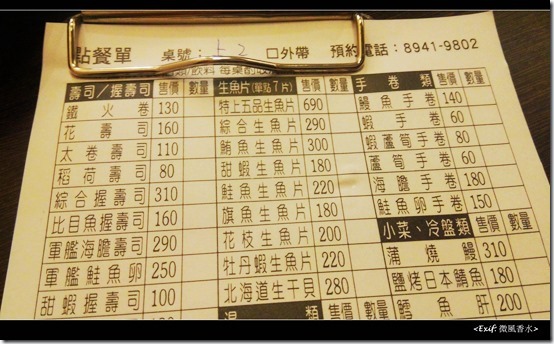 點餐單 桌號：上2 口外帶 預約電話：8941-9802
類/飲料 每桌酌
壽司／握壽司 售價 數量
鐵火卷 130
花壽司 160
太卷壽司 110
稻荷壽司 80
綜合握壽司 310
比目魚握壽司 160
軍艦海膽壽司 290
軍艦鮭魚卵 250
甜蝦握壽司 100
生魚片(單點7片) 售價 數量
特上五品生魚片 690
綜合生魚片 290
鮪魚生魚片 300
甜蝦生魚片 180
鮭魚生魚片 220
旗魚生魚片 180
花枝生魚片 200
牡丹蝦生魚片 220
北海道生干貝 280
湯類 售價 數量
手卷類 售價 數量
鰻魚手卷 140
蝦手卷 60
蝦蘆筍手卷 80
蘆筍手卷 60
海膽手卷 180
鮭魚卵手卷 150
小菜、冷盤類 售價 數量
蒲燒鰻 310
鹽烤日本鯖魚 180
鱈魚肝 200
<Exif: 微風香水>